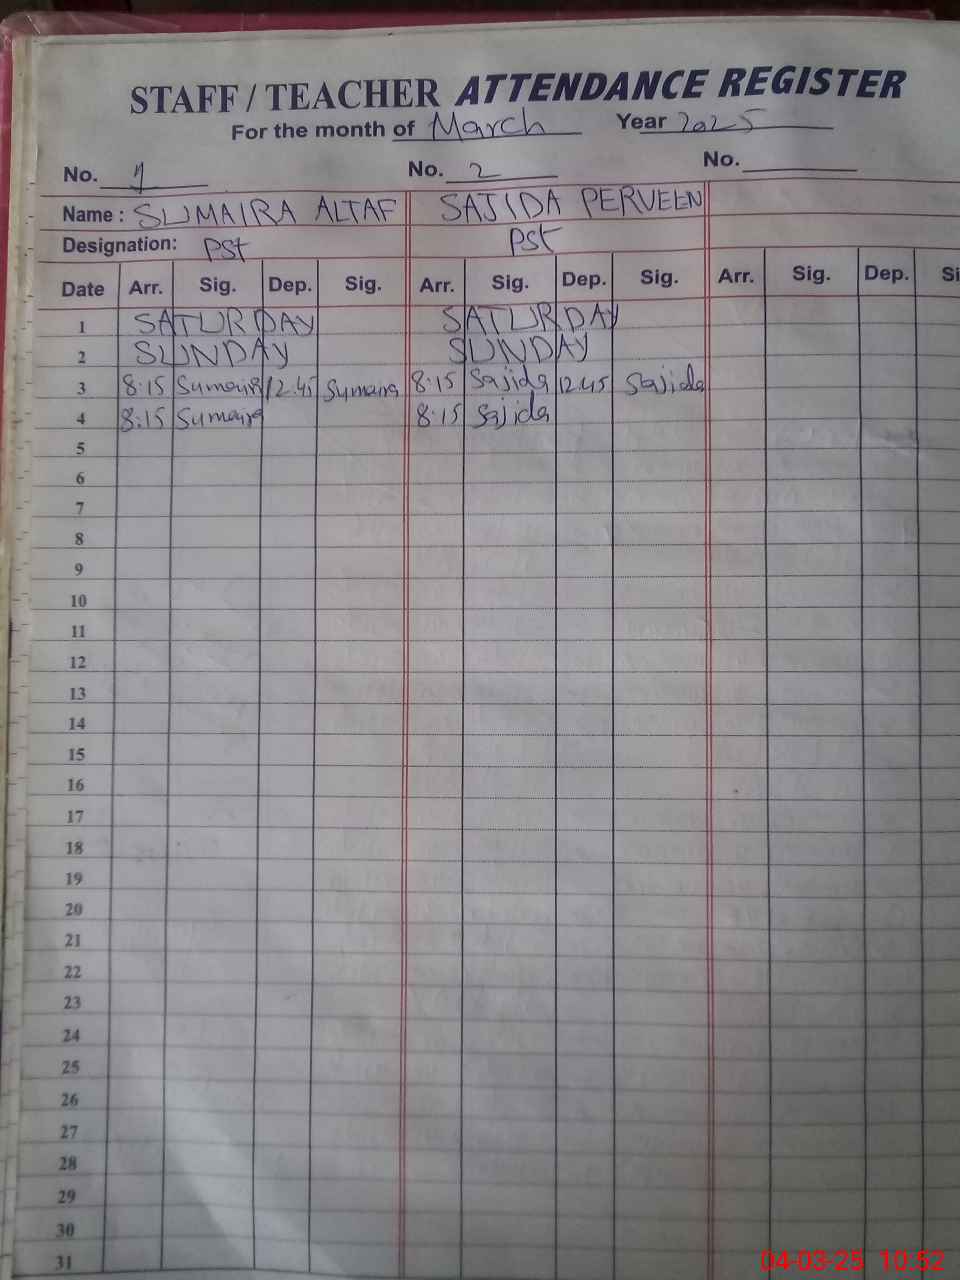 STAFF / TEACHER ATTENDANCE REGISTER
For the month of March Year 2025
No. 1 No. 2 No.
Name : SUMAIRA ALTAF SAJIDA PERVEEN
Designation: PST PST
Date Arr. Sig. Dep. Sig. Arr. Sig. Dep. Sig. Arr. Sig. Dep. Si
1 SATURDAY SATURDAY
2 SUNDAY SUNDAY
3 8:15 Sumaira 12.45 Sumaira 8:15 Sajida 12.45 Sajida
4 8:15 Sumaira 8:15 Sajida
5
6
7
8
9
10
11
12
13
14
15
16
17
18
19
20
21
22
23
24
25
26
27
28
29
30
31
04-03-25 10:52